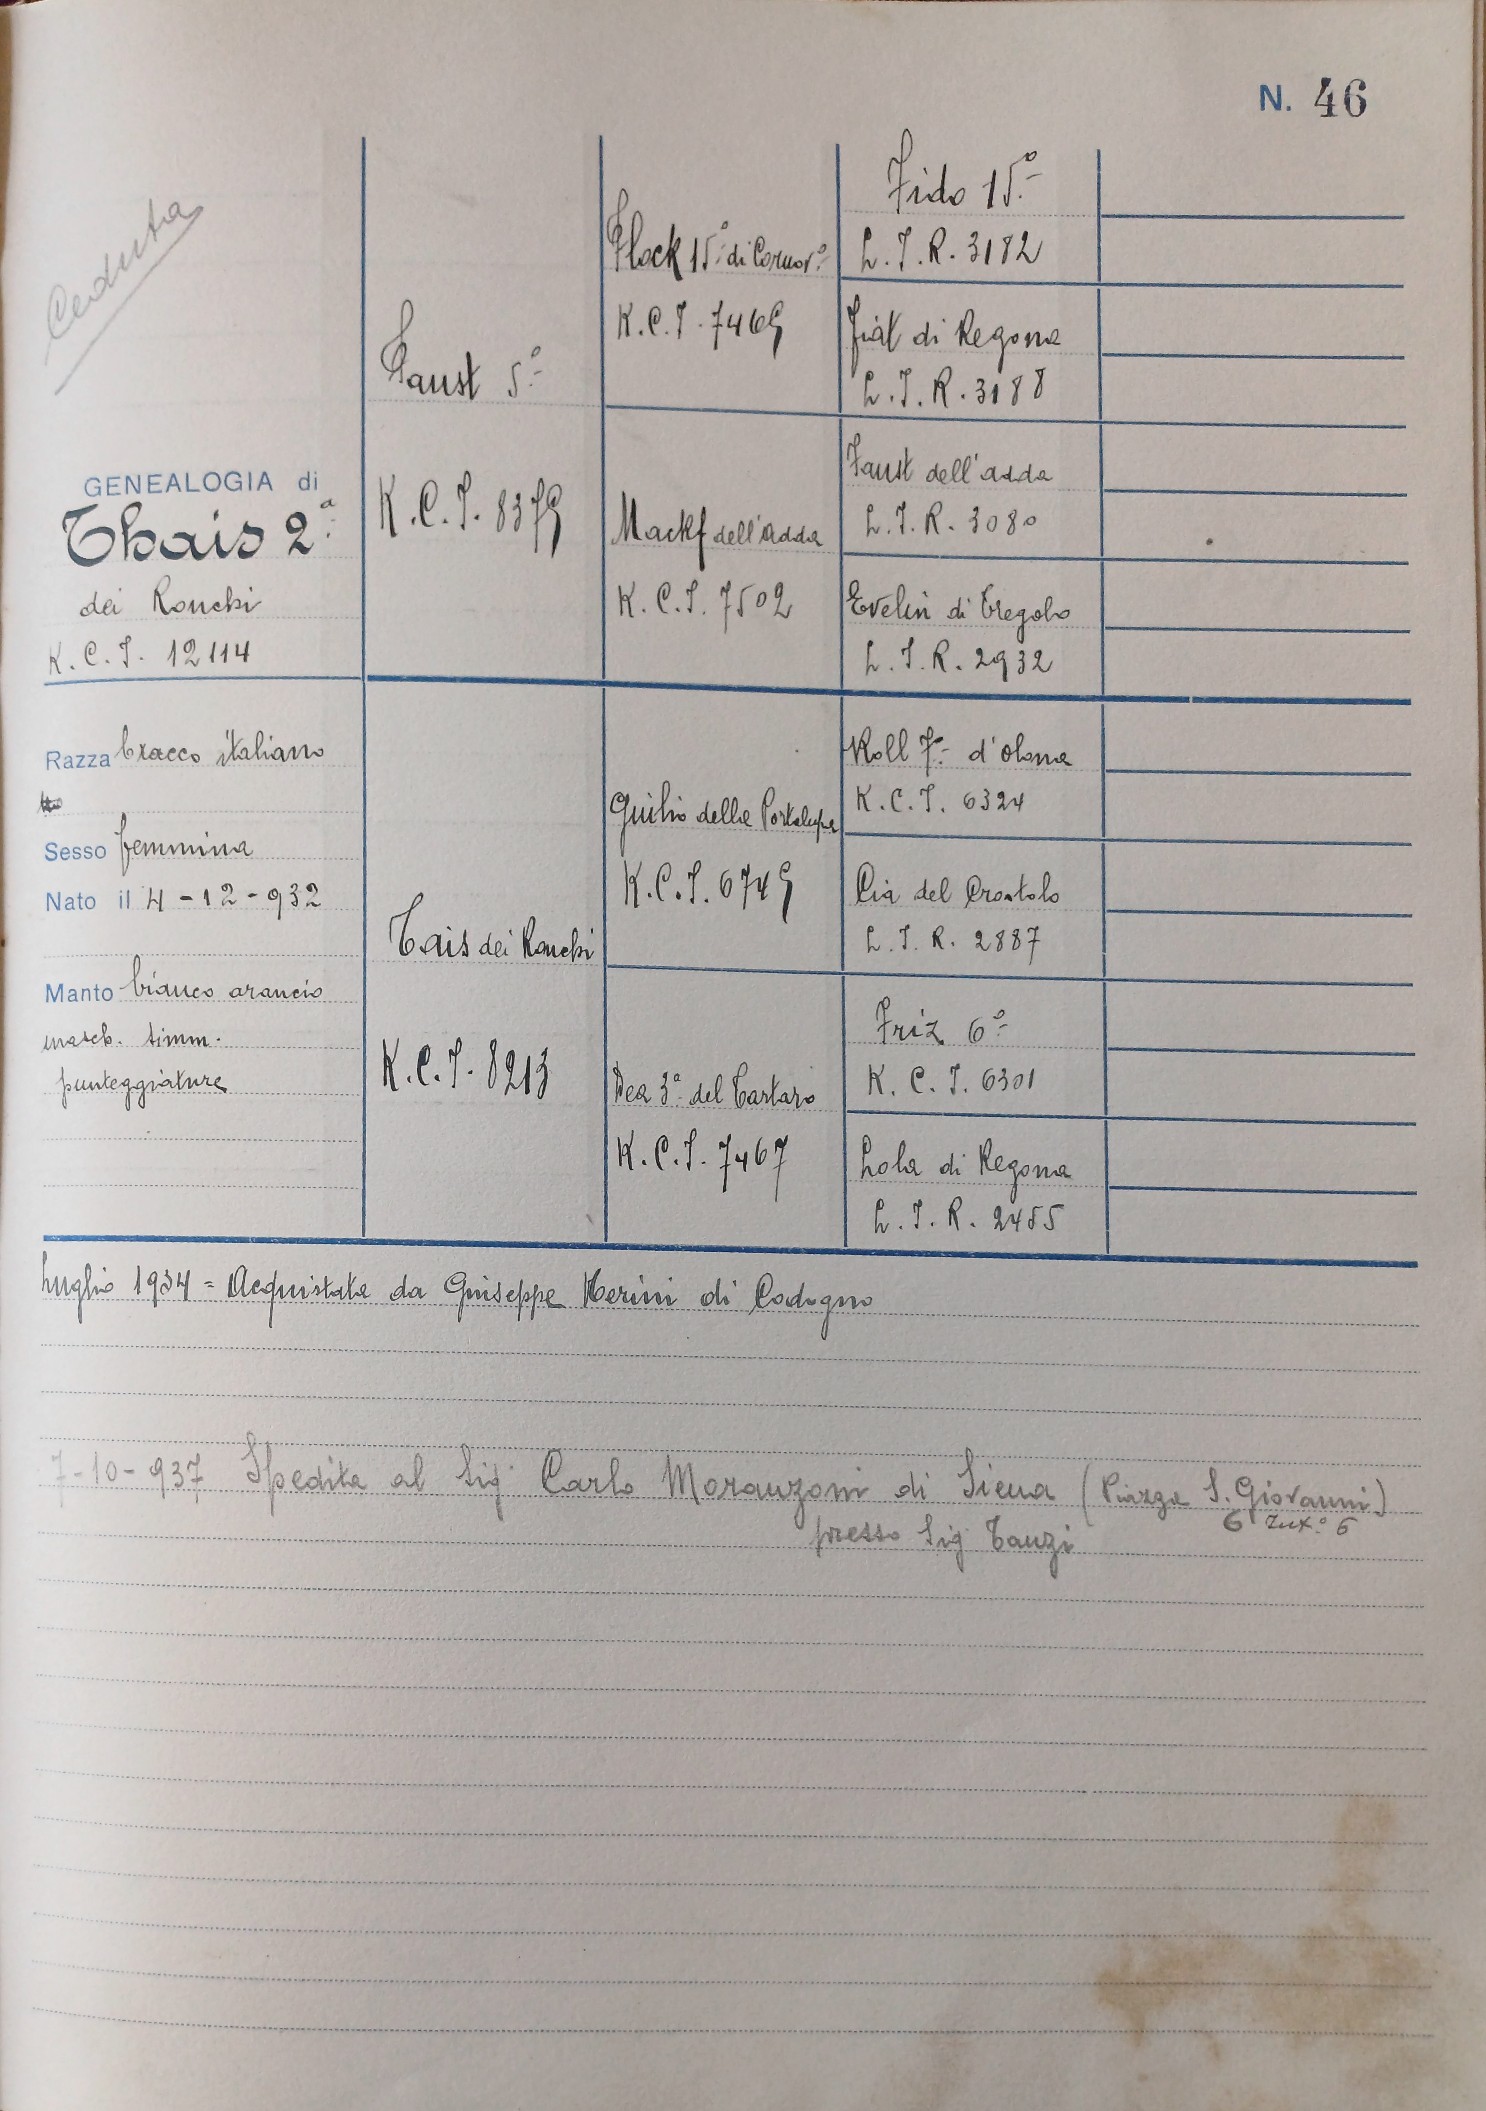 N. 46
Ceduta
GENEALOGIA di
Thais 2ª
dei Ronchi
K.C.I. 12114
Razza bracco italiano
Sesso femmina
Nato il 4-12-932
Manto bianco arancio
masch. simm.
punteggiature
Faust 5º
K.C.I. 8379
Tais dei Ronchi
K.C.I. 8213
Flock 15º di Cornovº
K.C.I. 7469
Mackf dell'Adda
K.C.I. 7502
Giulio della Portalupa
K.C.I. 6749
Dea 3ª del Tartaro
K.C.I. 7467
Fido 15º
L.I.R. 3182
Fiat di Regona
L.I.R. 3188
Faust dell'adda
L.I.R. 3080
Evelin di Tregolo
L.I.R. 2932
Roll 7º d'Olona
K.C.I. 6324
Cia del Crostolo
L.I.R. 2887
Friz 6º
K.C.I. 6301
Lola di Regona
L.I.R. 2455
Luglio 1934 = Acquistata da Giuseppe di Codogno
7-10-937 Spedita al Sig. Carlo Moranzoni di Siena (Piazza S. Giovanni)
6 6
presso Sig Tanzi